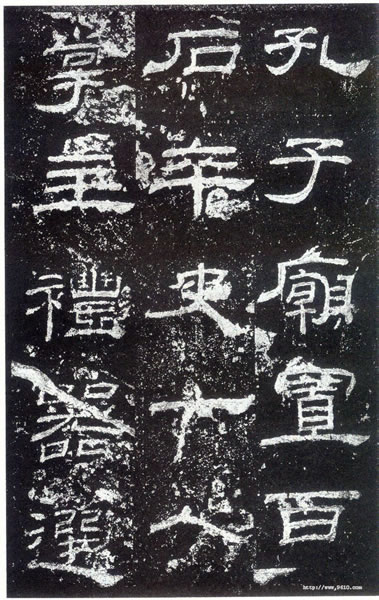 孔子廟置百
石卒史一人
掌主禮器選
http://www.9610.com